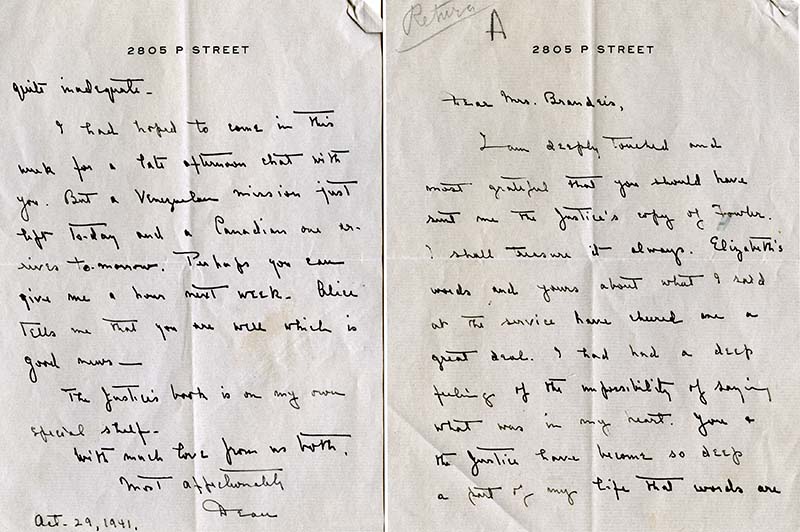 Return
A
2805 P STREET
Dear Mrs. Brandeis,
I am deeply touched and
most grateful that you should have
sent me the Justice's copy of Fowler.
I shall treasure it always. Elizabeth's
words and yours about what I said
at the service have cheered me a
great deal. I had had a deep
feeling of the impossibility of saying
what was in my heart. You &
the Justice have become so deep
a part of my life that words are
2805 P STREET
quite inadequate.
I had hoped to come in this
week for a late afternoon chat with
you. But a Venezuelan mission just
left to-day and a Canadian one ar-
rives to-morrow. Perhaps you can
give me a hour next week. Alice
tells me that you are well which is
good news—
The Justice's book is on my own
special shelf.
With much love from us both,
Most affectionately
Dean
Oct. 29, 1941.